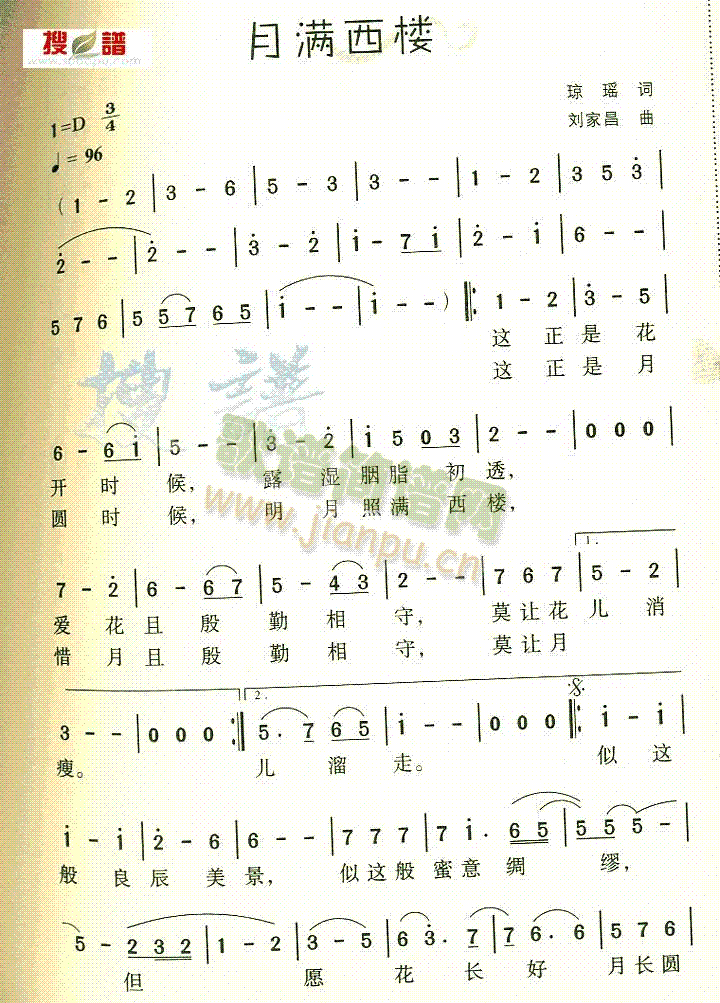 搜谱
www.sooopu.com
月满西楼
琼瑶 词
刘家昌 曲
1=D 3/4
♩= 96
( 1 - 2 | 3 - 6 | 5 - 3 | 3 - - | 1 - 2 | 3 5 3̇ |
2̇ - - | 2̇ - - | 3̇ - 2̇ | i - 7 i | 2̇ - i | 6 - - |
5 7 6 | 5 5 7 6 5 | i - - | i - - ) ‖: 1 - 2 | 3̇ - 5 |
这 正 是 花
这 正 是 月
6 - 6 i | 5 - - | 3̇ - 2̇ | i 5 0 3 | 2 - - | 0 0 0 |
开 时 候, 露 湿 胭 脂 初 透,
圆 时 候, 明 月 照 满 西 楼,
歌谱简谱网
www.jianpu.cn
1.
7 - 2̇ | 6 - 6 7 | 5 - 4 3 | 2 - - | 7 6 7 | 5 - 2 |
爱 花 且 殷 勤 相 守, 莫 让 花 儿 消
惜 月 且 殷 勤 相 守, 莫 让 月
2.
3 - - | 0 0 0 :‖ 5 . 7 | 6 5 5 | i - - | 0 0 0 :‖ i - i |
瘦。 儿 溜 走。 似 这
i - i | 2̇ - 6 | 6 - - | 7 7 7 | 7 i . 6 5 | 5 5 5 - |
般 良 辰 美 景, 似 这 般 蜜 意 绸 缪,
5 - 2 3 2 | 1 - 2 | 3 - 5 | 6 3̇ . 7 | 7 6 . 6 | 5 7 6 |
但 愿 花 长 好 月 长 圆